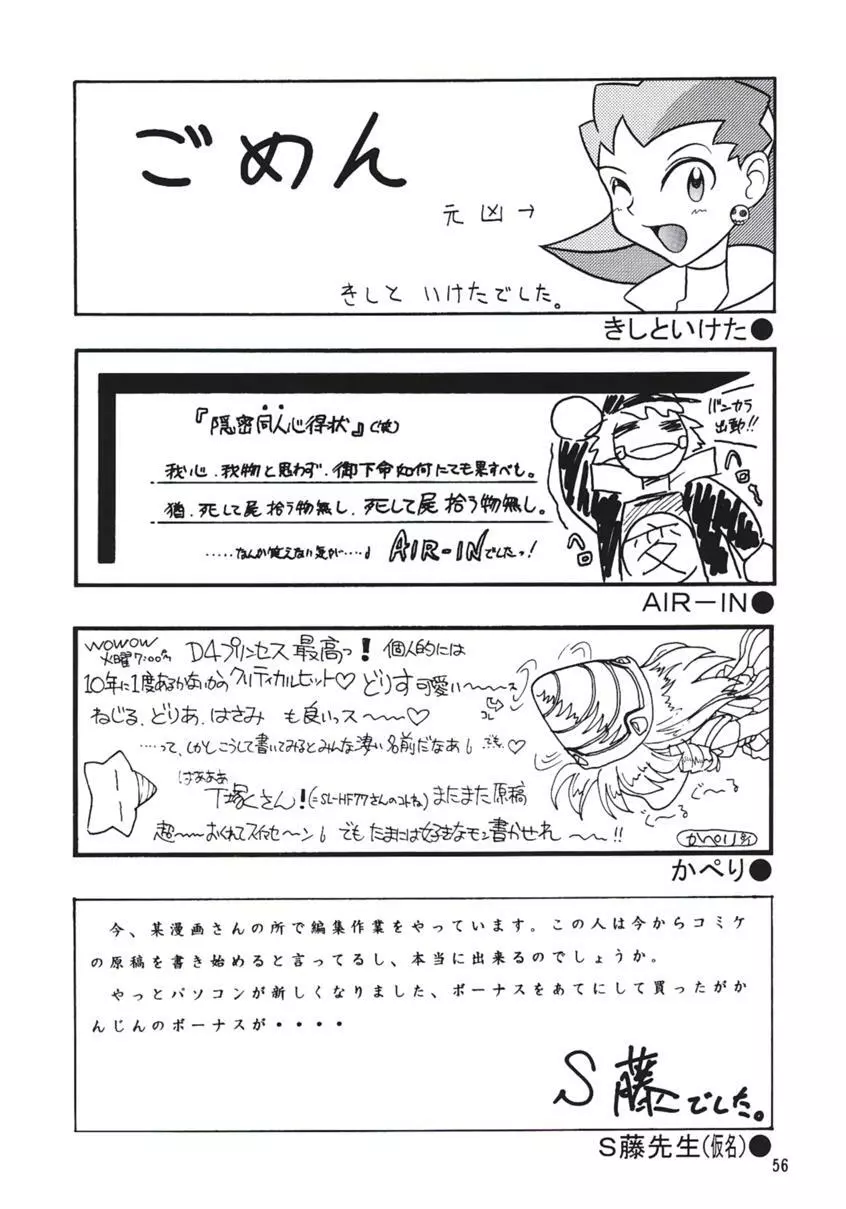 ごめん
元凶→
きしと いけたでした。
きしといけた●
『隠密同人心得状』(嘘)
バンカラ
出動!!
我心、我物と思わず、御下命如何にても果すべも。
猶、死して屍拾う物無し、死して屍拾う物無し。
‥‥‥なんか覚えない気が‥‥♪ AIR-INでしたっ!
ヘロ
ヘロ
変
AIR-IN●
WOWOW
火曜7:00から D4プリンセス最高っ! 個人的には
10年に1度あるかないかのクリティカルヒット♡ どりす可愛い〜〜〜ス
ねじる、どりあ、はさみ も良いっス〜〜〜♡
コレ
‥‥って、しかしこうして書いてみるとみんな凄い名前だなあ でも♡
はぁぁぁ
T塚くさん!(=SL-HF77さんのコトね)またまた原稿
超〜〜〜おくれてスイマセ〜〜ン でもたまには好きなモン書かせれ〜〜!!
ぐ〜る
ぐ〜る
かぺり
かぺり●
今、某漫画さんの所で編集作業をやっています。この人は今からコミケ
の原稿を書き始めると言ってるし、本当に出来るのでしょうか。
やっとパソコンが新しくなりました、ボーナスをあてにして買ったがか
んじんのボーナスが・・・・
S藤でした。
S藤先生(仮名)●
56